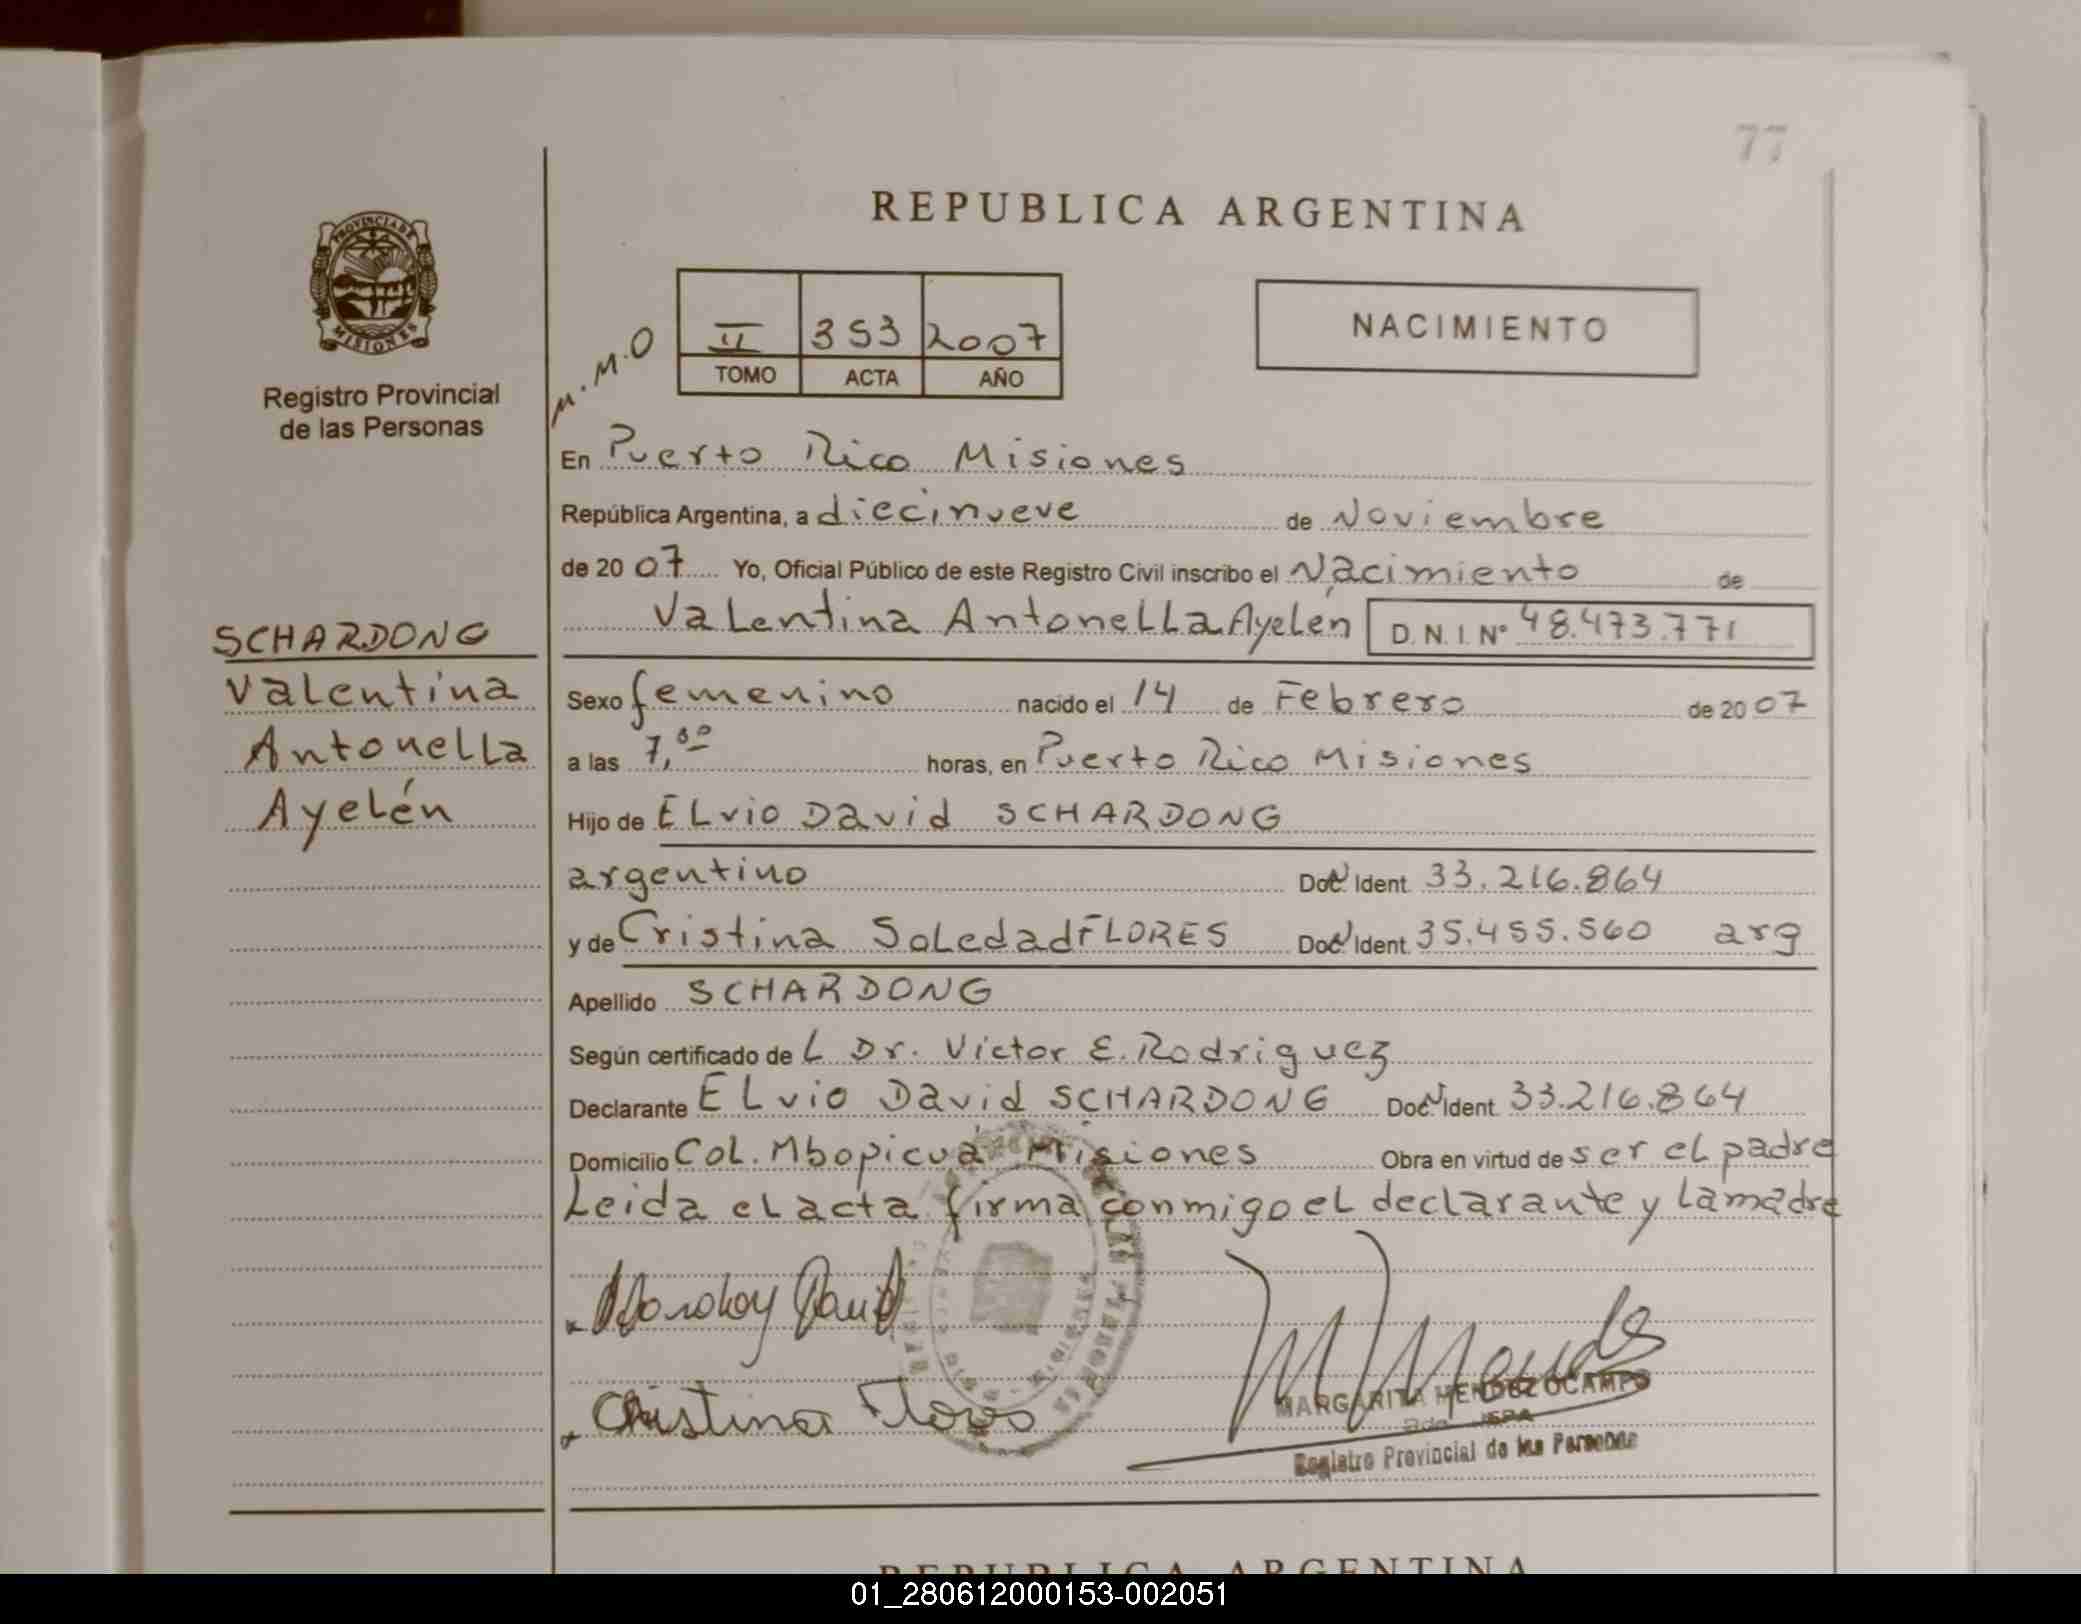 77
REPUBLICA ARGENTINA
PROVINCIA DE
MISIONES
Registro Provincial
de las Personas
M.M.O
II 353 2007
TOMO ACTA AÑO
NACIMIENTO
En Puerto Rico Misiones
República Argentina, a diecinueve de Noviembre
de 20 07 Yo, Oficial Público de este Registro Civil inscribo el Nacimiento de
Valentina Antonella Ayelén D. N. I. N° 48.473.771
SCHARDONG
Valentina
Antonella
Ayelén
Sexo femenino nacido el 14 de Febrero de 20 07
a las 7,00 horas, en Puerto Rico Misiones
Hijo de Elvio David SCHARDONG
argentino Doc. Ident 33.216.864
y de Cristina Soledad FLORES Doc. Ident. 35.455.560 arg
Apellido SCHARDONG
Según certificado de L Dr. Victor E. Rodriguez
Declarante Elvio David SCHARDONG Doc. Ident. 33.216.864
Domicilio Col. Mbopicuá Misiones Obra en virtud de ser el padre
Leida el acta firma conmigo el declarante y la madre
David
Cristina Flores
MARGARITA MENDEZ OCAMPO
Registro Provincial de las Personas
REPUBLICA ARGENTINA
01_280612000153-002051